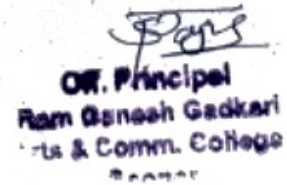 Off. Principal
Ram Ganesh Gadkari
rts & Comm. College